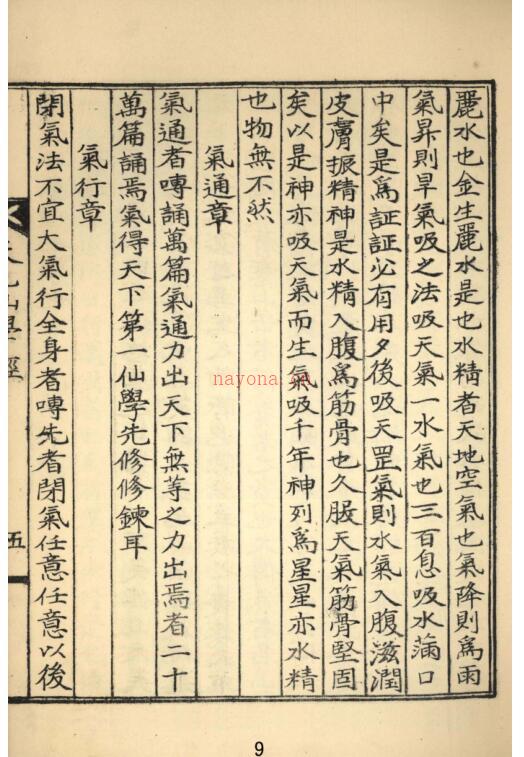 麗水也金生麗水是也水精者天地空氣也氣降則爲雨
氣昇則旱氣吸之法吸天氣一水氣也三百息吸水滿口
中矣是爲証証必有用夕後吸天罡氣則水氣入腹滋潤
皮膚振精神是水精入腹爲筋骨也久服天氣筋骨堅固
矣以是神亦吸天氣而生氣吸千年神列爲星星亦水精
也物無不然
氣通章
氣通者嘳誦萬篇氣通力出天下無等之力出焉者二十
萬篇誦焉氣得天下第一仙學先修修鍊耳
氣行章
閉氣法不宜大氣行全身者嘳先者閉氣任意任意以後
五
nayona.cn
9